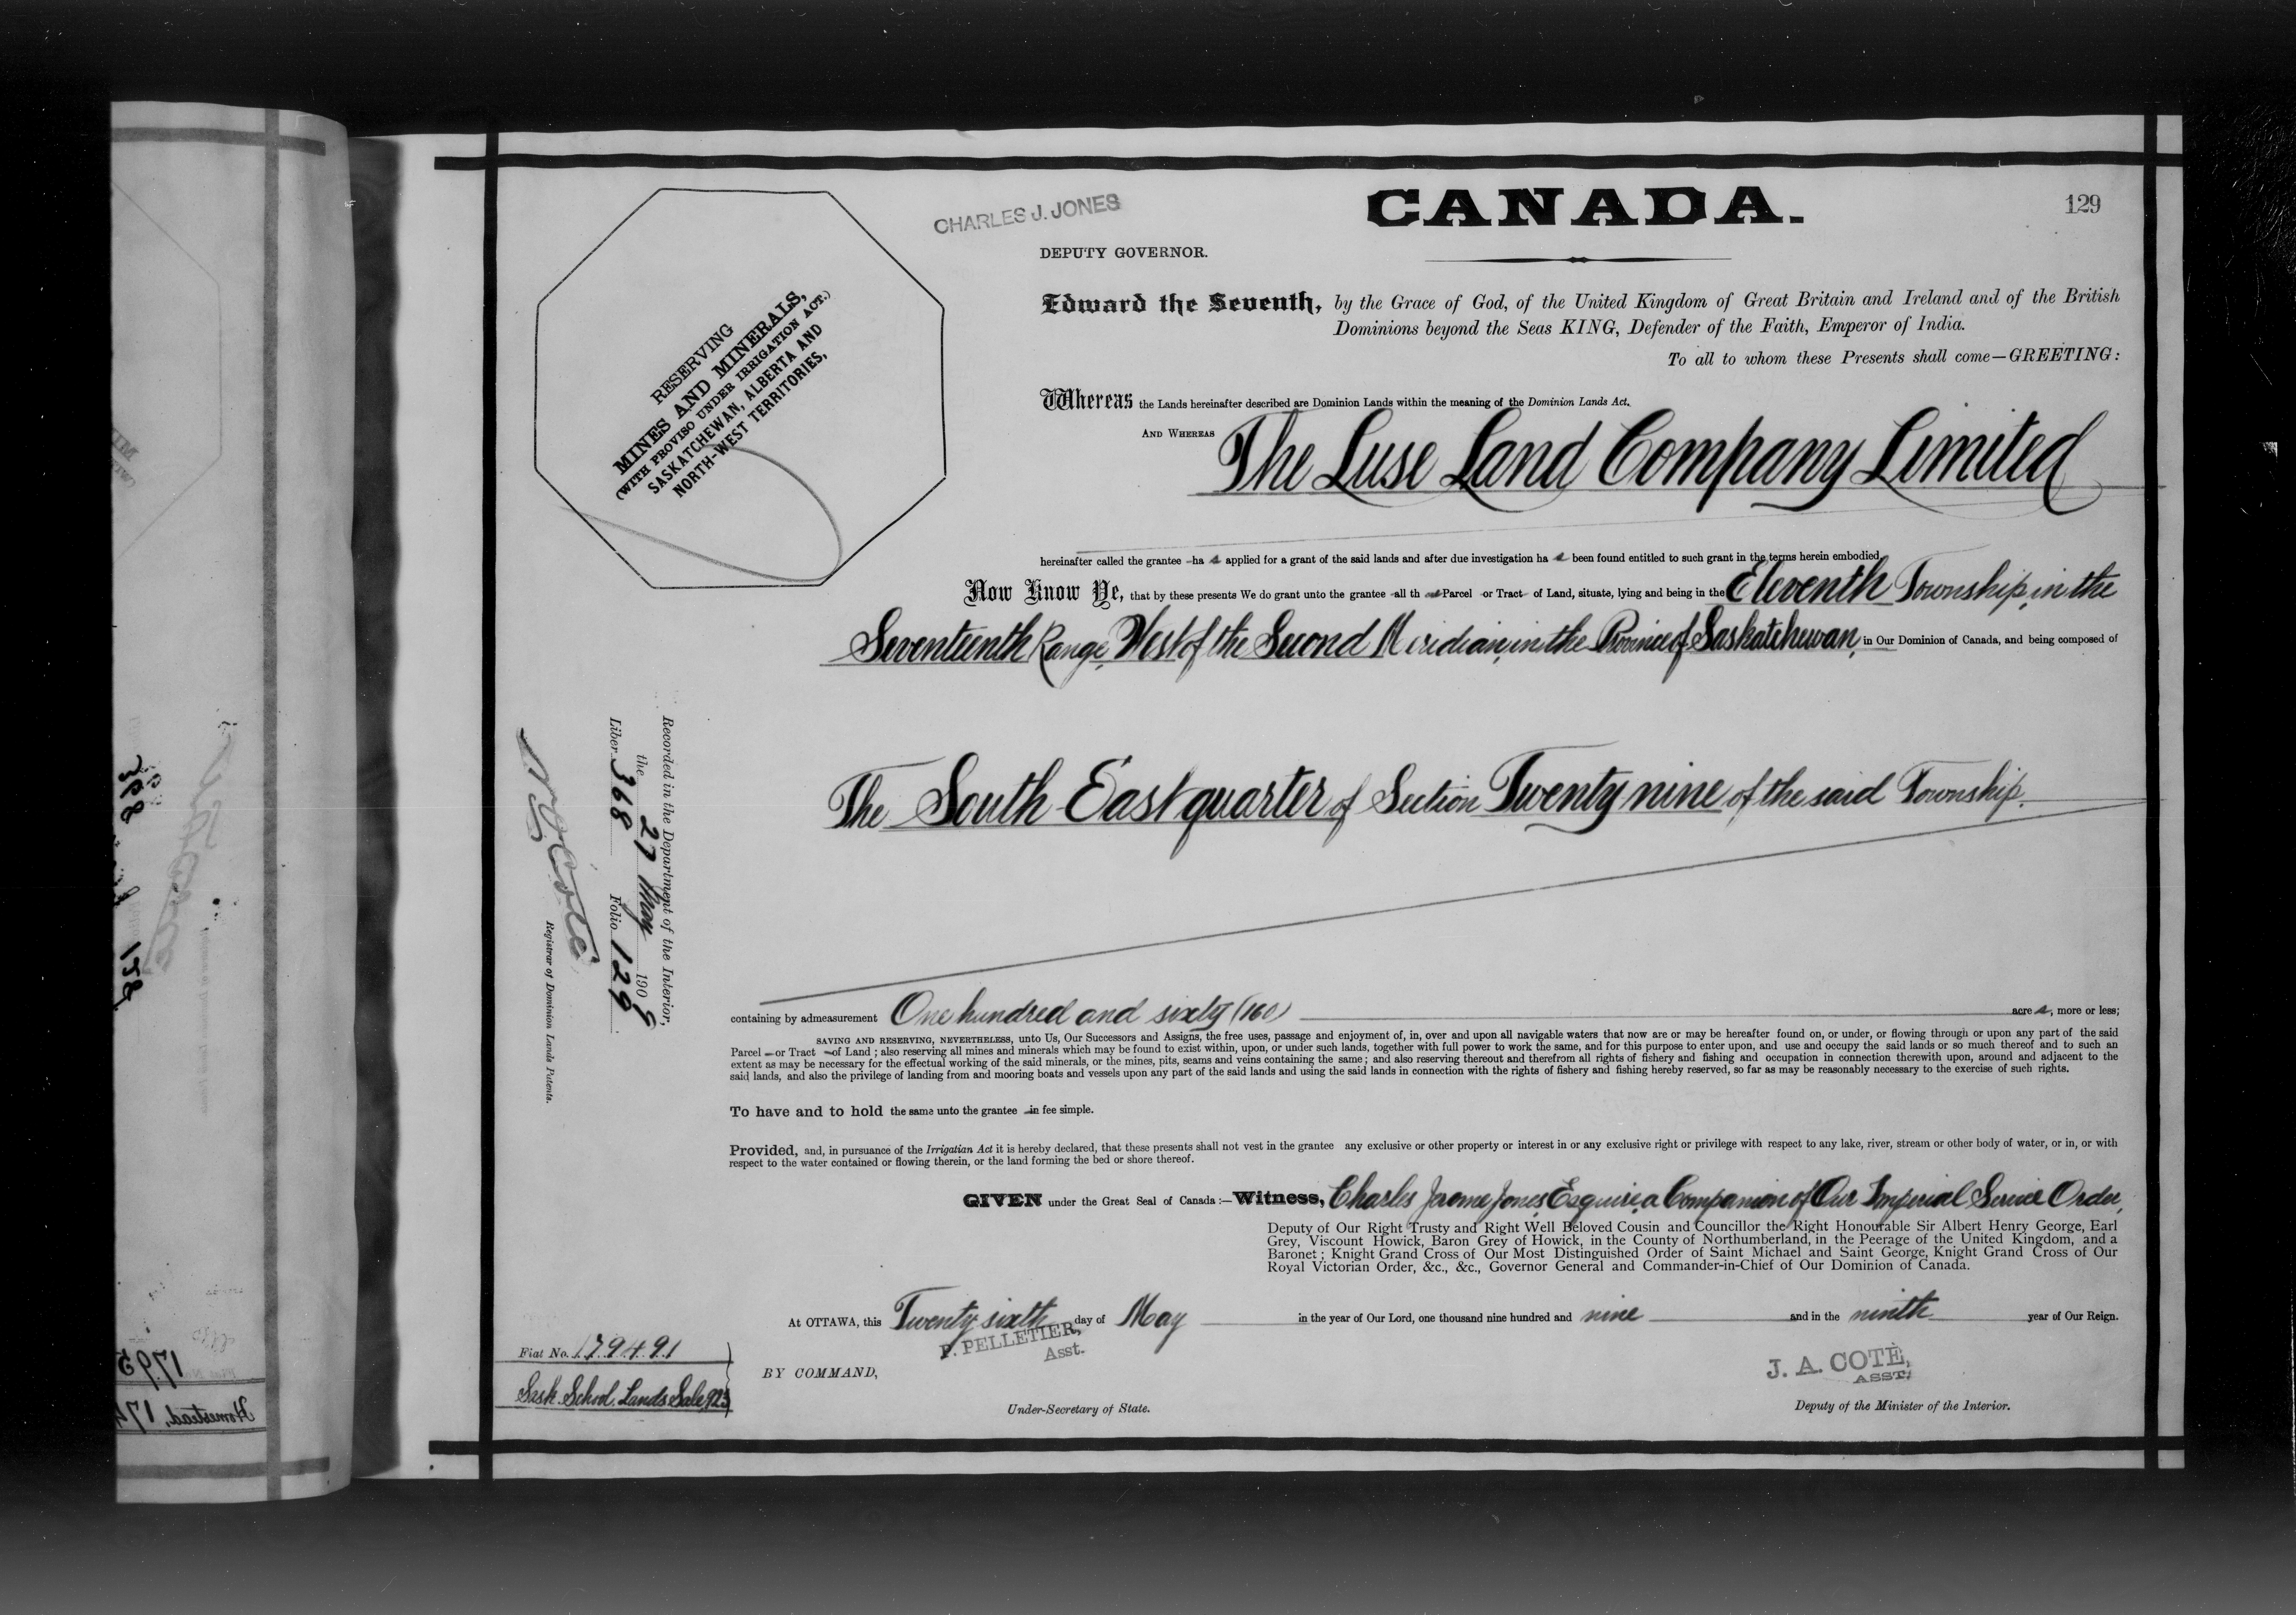 CANADA.
129
CHARLES J. JONES
DEPUTY GOVERNOR.
RESERVING
MINES AND MINERALS,
(WITH PROVISO UNDER IRRIGATION ACT.)
SASKATCHEWAN, ALBERTA AND
NORTH-WEST TERRITORIES,
Edward the Seventh, by the Grace of God, of the United Kingdom of Great Britain and Ireland and of the British
Dominions beyond the Seas KING, Defender of the Faith, Emperor of India.
To all to whom these Presents shall come—GREETING:
Whereas the Lands hereinafter described are Dominion Lands within the meaning of the Dominion Lands Act.
AND WHEREAS The Luse Land Company Limited
hereinafter called the grantee ha s applied for a grant of the said lands and after due investigation ha s been found entitled to such grant in the terms herein embodied,
Now Know Ye, that by these presents We do grant unto the grantee all th at Parcel or Tract of Land, situate, lying and being in the Eleventh Township, in the
Seventeenth Range, West of the Second Meridian, in the Province of Saskatchewan, in Our Dominion of Canada, and being composed of
The South East quarter of Section Twenty nine of the said Township.
containing by admeasurement One hundred and sixty (160) acre s, more or less;
SAVING AND RESERVING, NEVERTHELESS, unto Us, Our Successors and Assigns, the free uses, passage and enjoyment of, in, over and upon all navigable waters that now are or may be hereafter found on, or under, or flowing through or upon any part of the said
Parcel or Tract of Land ; also reserving all mines and minerals which may be found to exist within, upon, or under such lands, together with full power to work the same, and for this purpose to enter upon, and use and occupy the said lands or so much thereof and to such an
extent as may be necessary for the effectual working of the said minerals, or the mines, pits, seams and veins containing the same ; and also reserving thereout and therefrom all rights of fishery and fishing and occupation in connection therewith upon, around and adjacent to the
said lands, and also the privilege of landing from and mooring boats and vessels upon any part of the said lands and using the said lands in connection with the rights of fishery and fishing hereby reserved, so far as may be reasonably necessary to the exercise of such rights.
To have and to hold the same unto the grantee in fee simple.
Provided, and, in pursuance of the Irrigatian Act it is hereby declared, that these presents shall not vest in the grantee any exclusive or other property or interest in or any exclusive right or privilege with respect to any lake, river, stream or other body of water, or in, or with
respect to the water contained or flowing therein, or the land forming the bed or shore thereof.
GIVEN under the Great Seal of Canada :—Witness, Charles Jerome Jones Esquire, a Companion of Our Imperial Service Order,
Deputy of Our Right Trusty and Right Well Beloved Cousin and Councillor the Right Honourable Sir Albert Henry George, Earl
Grey, Viscount Howick, Baron Grey of Howick, in the County of Northumberland, in the Peerage of the United Kingdom, and a
Baronet ; Knight Grand Cross of Our Most Distinguished Order of Saint Michael and Saint George, Knight Grand Cross of Our
Royal Victorian Order, &c., &c., Governor General and Commander-in-Chief of Our Dominion of Canada.
At OTTAWA, this Twenty sixth day of May in the year of Our Lord, one thousand nine hundred and nine and in the ninth year of Our Reign.
P. PELLETIER,
Asst.
BY COMMAND,
Under-Secretary of State.
J. A. COTÉ,
ASST.
Deputy of the Minister of the Interior.
Recorded in the Department of the Interior,
the 27 May 190 9
Liber 368 Folio 129
N O Coté
Registrar of Dominion Lands Patents.
Fiat No. 179491
Sask. School Lands Sale, 923